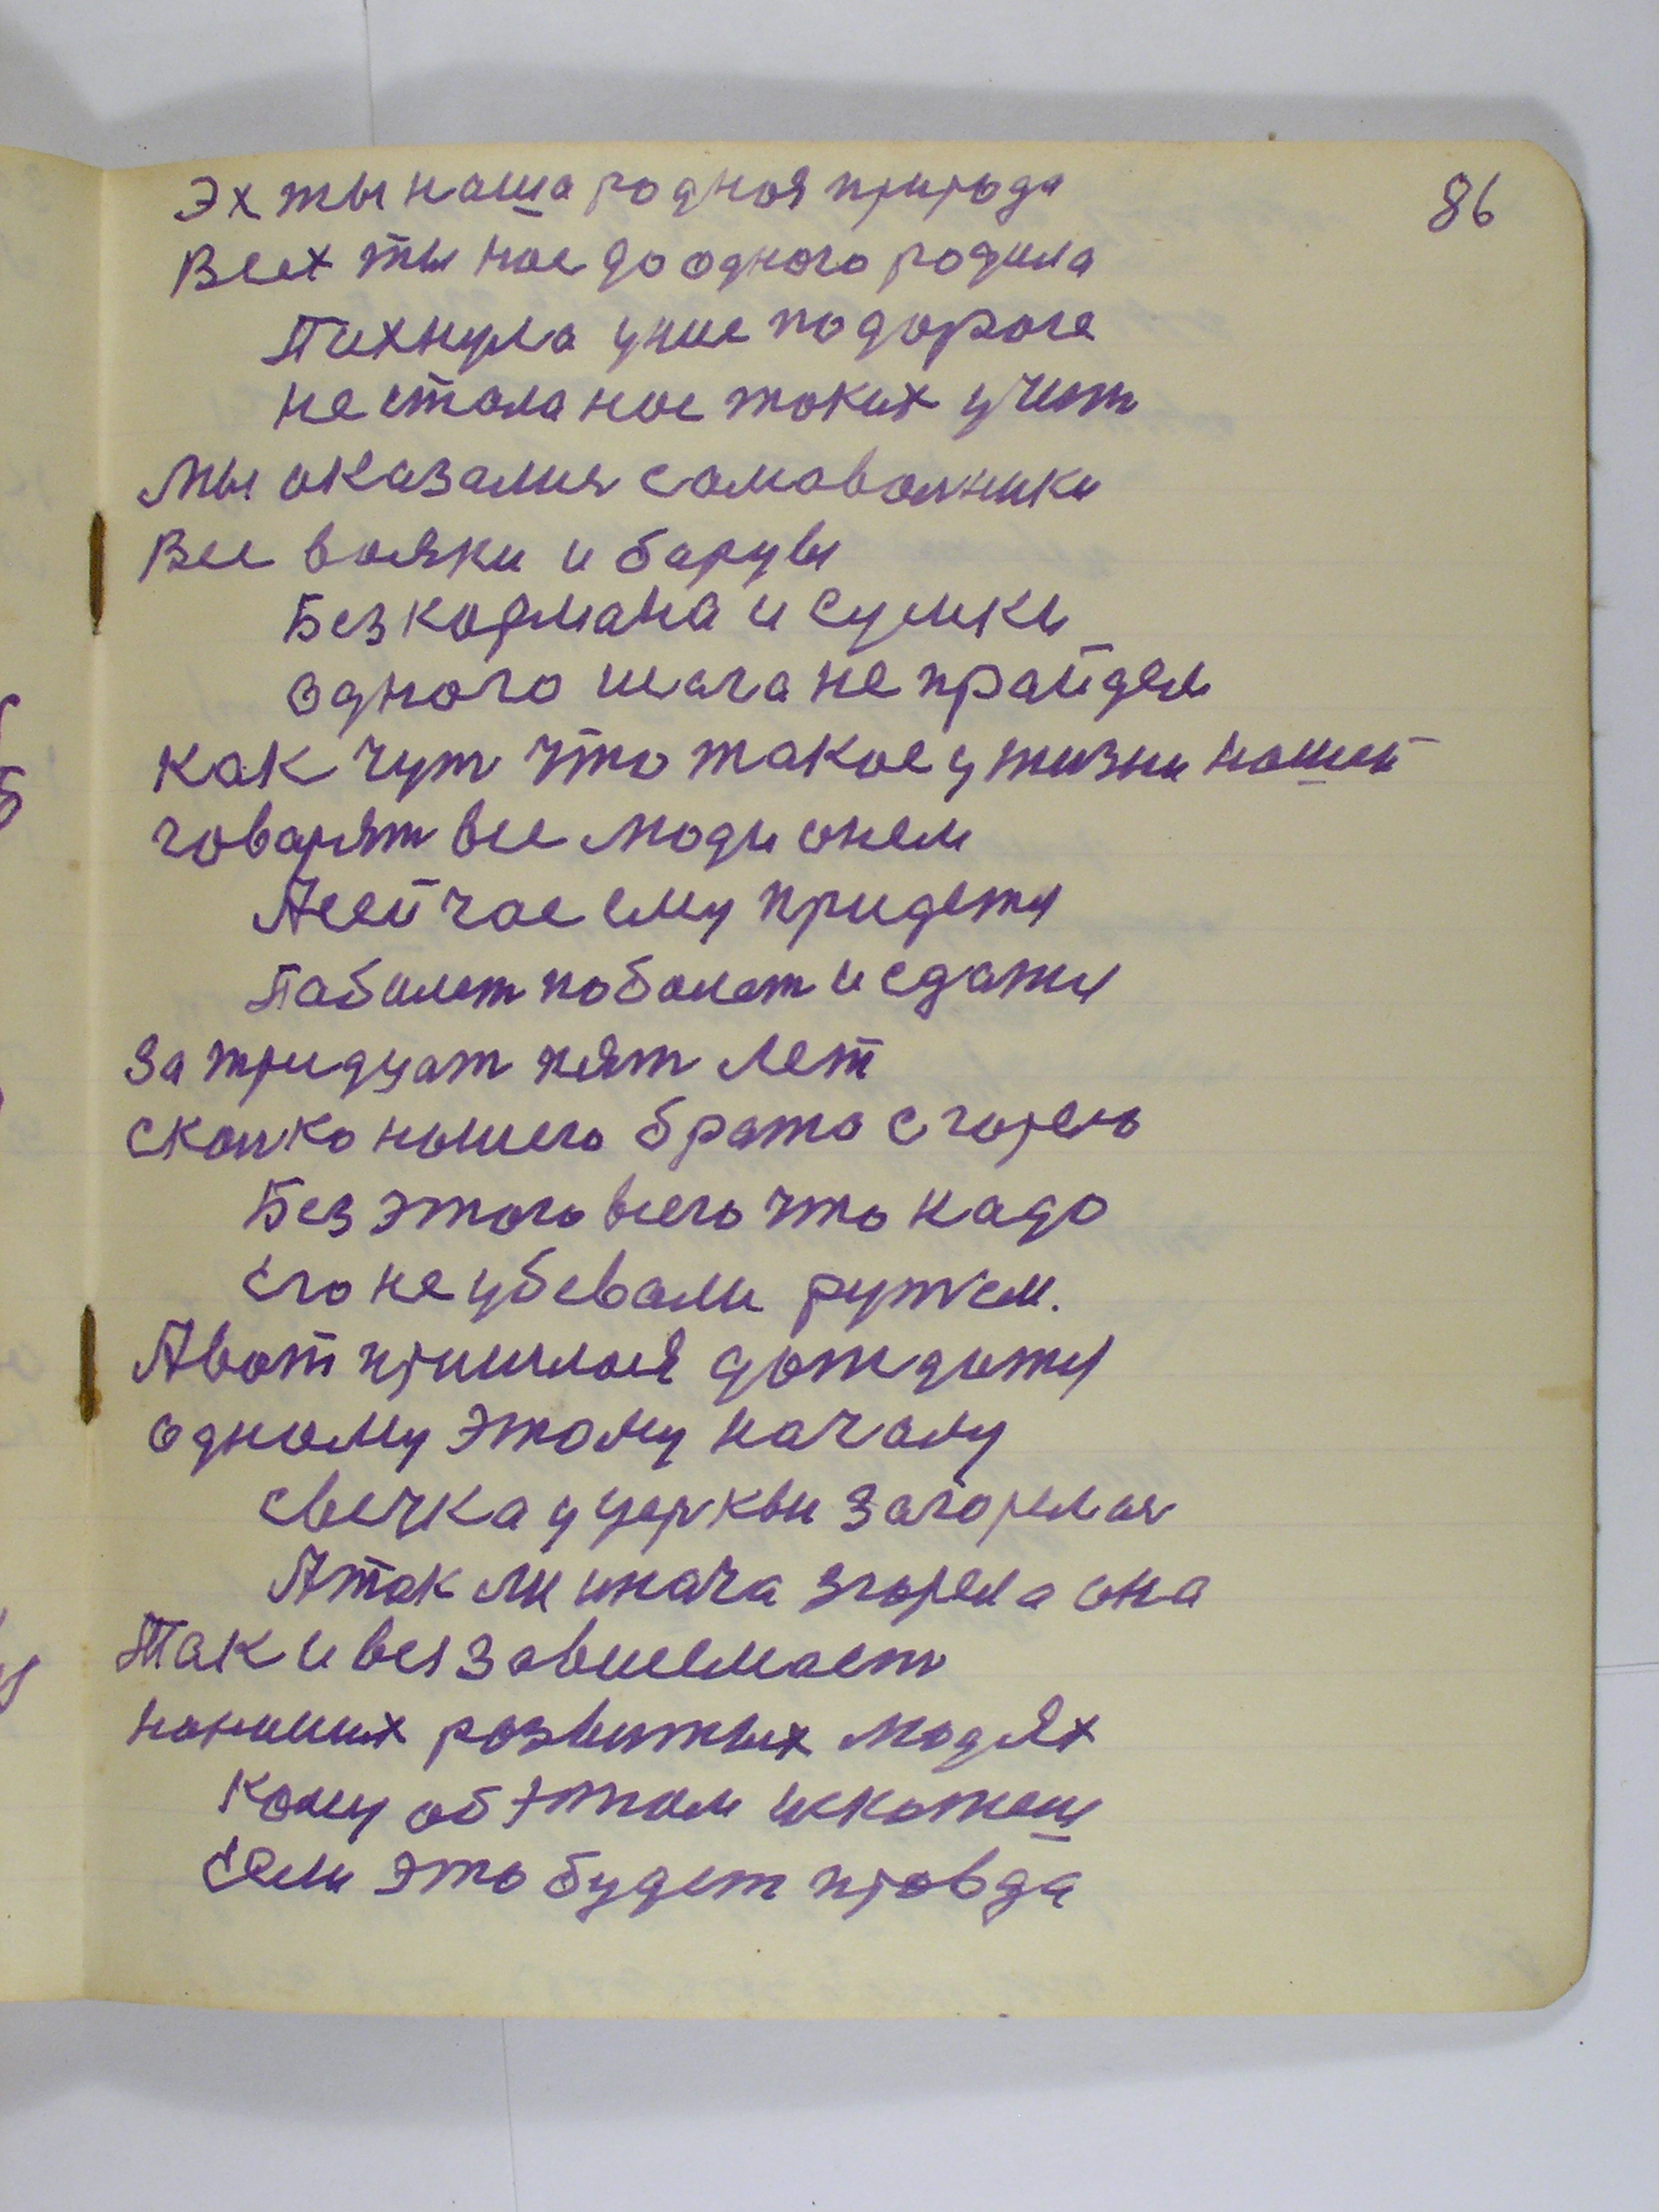 86
Эх ты наша родная природа
Всех ты нас до одного родила
Пихнула у нис по дороге
не стала нас таких учит
Мы оказалися самаволники
Все вояки и борцы
Без кормана и сумки
одного шага не прайдем
как чут что такое у жизни нашей
говарят все люди о нем
А сейчас ему придется
Паболет поболет и сдатся
За тридцат пят лет
сколко нашего брата сгорело
Без этого всего что надо
Его не убевали ружъем.
А вот пришлося дождатся
одному этому началу
свечка у церкви загорелася
А так ли иначе згорела она
Так и вся зависемаст
на наших розвитых людях
кому об этом искажеш
Если это будет провда